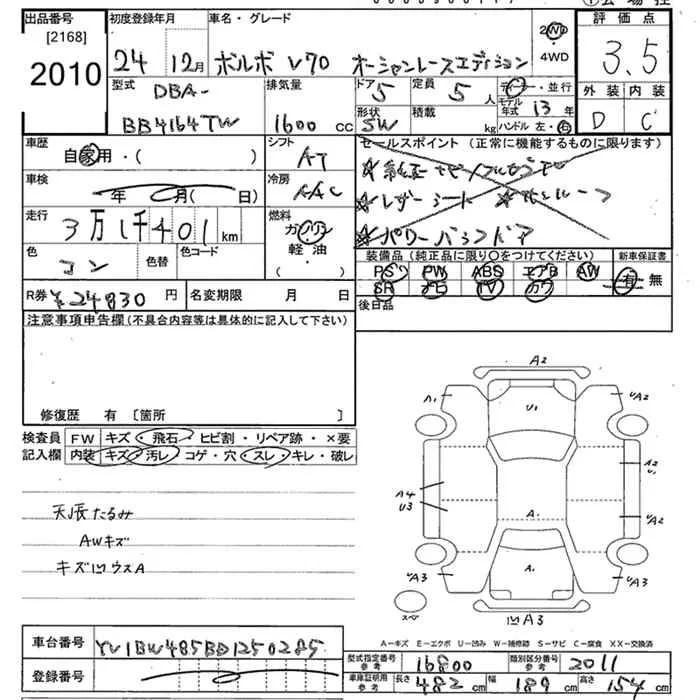 出品番号
[2168]
2010
初度登録年月
24 12月
車名・グレード
ボルボ V70 オーシャンレースエディション
2WD
4WD
評価点
3.5
外装 内装
D C
型式
DBA-
BB4164TW
排気量
1600 cc
ドア 5
定員 5 人
ディーラー・並行
モデル年式 13 年
形状 SW
積載 kg
ハンドル 左・右
車歴
自家用・( )
シフト
AT
セールスポイント (正常に機能するものに限ります)
☆レザーシート
☆パワーバックドア
車検
年 月( 日)
冷房
AAC
走行
3万1千401km
燃料
ガソリン
軽油
( )
色
コン
色替
色コード
装備品 (純正品に限り〇をつけてください)
PS PW ABS エアB AW
SR ナビ TV カワ
新車保証書
有・無
後日品
R券 ¥24830 円
名変期限 月 日
注意事項申告欄 (不具合内容等は具体的に記入して下さい)
修復歴 有 [箇所 ]
検査員
記入欄
FW キズ・飛石・ヒビ割・リペア跡・×要
内装 キズ・汚レ・コゲ・穴・スレ・キレ・破レ
天張たるみ
AWキズ
キズ凹ウスA
A2
A1
U1
UA2
A4
U3
A2
U
UA2
A1
UA3
A1
UA3
スペア
凹A3
A-キズ E-エクボ U-凹み W-補修跡 S-サビ C-腐食 XX-交換済
車台番号
YV1BW485BD1250285
登録番号
型式指定番号 参考
16800
類別区分番号 参考
2011
車庫証明用 参考
長さ 482 cm
幅 189 cm
高さ 154 cm